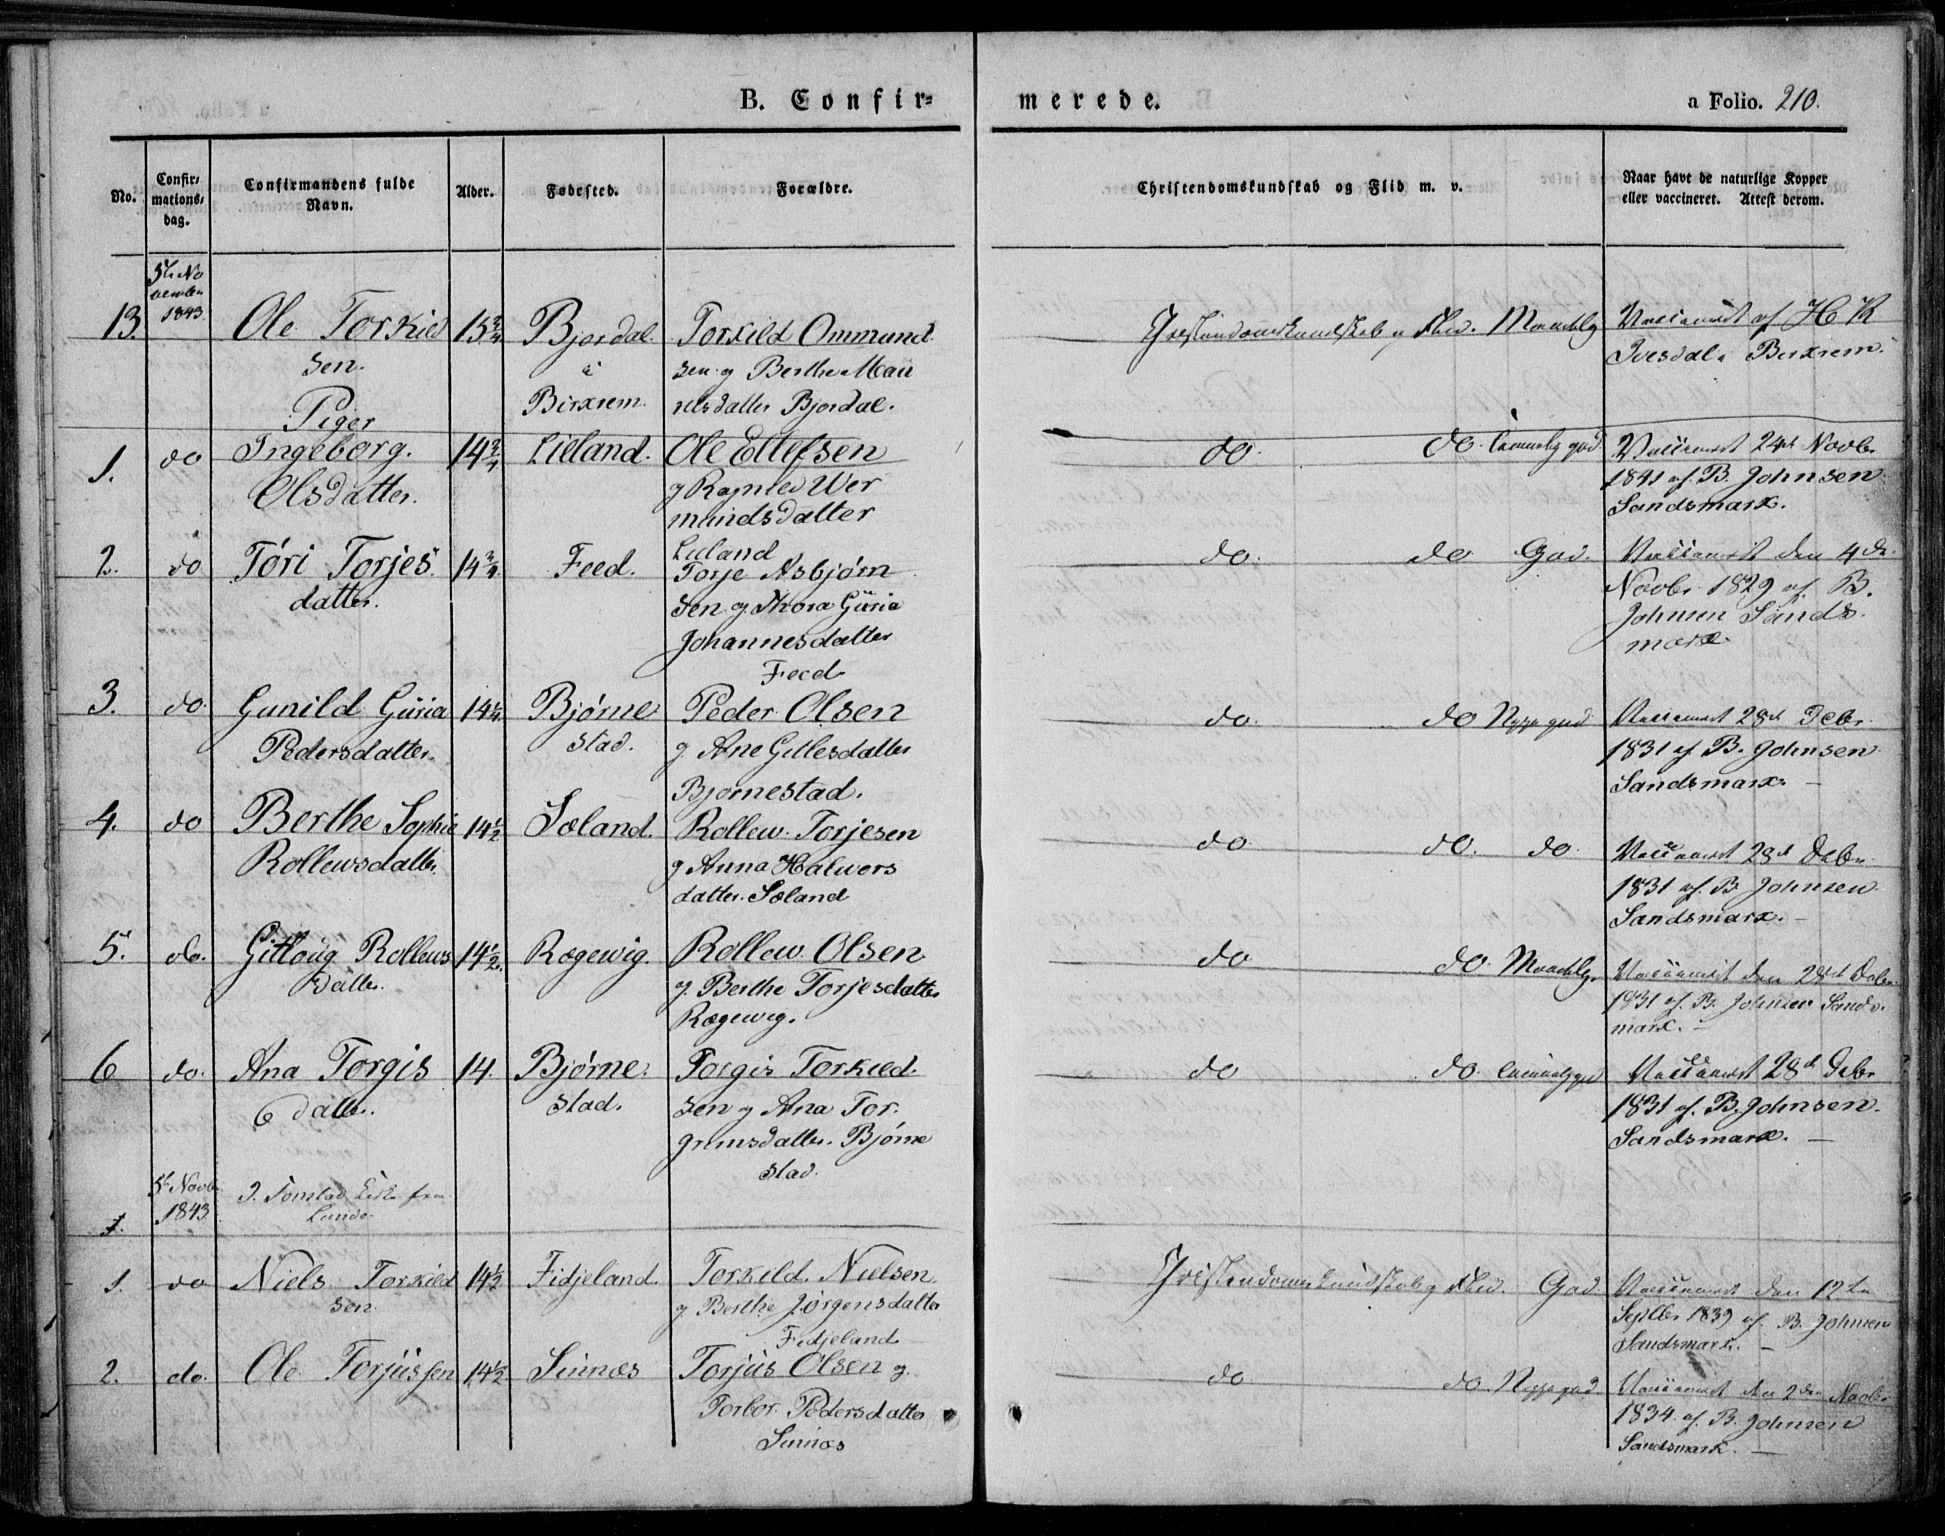 B. Confir=
merede.
a Folio. 210.
No.
Confir=
mations=
dag.
Confirmandens fulde
Navn.
Alder.
Fødested.
Forældre.
Christendomskundskab og Flid m. v.
Naar havt de naturlige Kopper
eller vaccineret. Attest derom.
13. 5te No
vember
1843 Ole Torkild 15 3/4 Bjordal Torkild Ommund
sen. i sen. og Berthe
Birkrem. Bjordal.
Christendomskundskab og Flid. Maadelig
Vaccineret af H R
Ivesdal i Birkrem.
Piger
1. do Ingeborg. 14 3/4 Lieland. Ole Ellefsen
Olsdatter. og Wer
mundsdatter
do. do. Vaccineret 24de Novbr
1841 af B. Johnsen
Sandsmark.
2. do Tøri Torjes 14 3/4 Feed. Torje Asbjørn
datter. sen og Thora Güria
Johannesdatter
Feed
do. do God. Vaccineret den 4de
Novbr 1829 af B.
Johnsen Sands
mark
3. do. Gunild Güria 14 1/4 Bjørne Peder Olsen
Pedersdatter. stad. og Ane Gitlesdatter
Bjørnestad.
do. do Vaccineret 28de Debr
1831 af B. Johnsen
Sandsmark. —
4. do Berthe Sophie 14 1/2 Søland. Rollew Torjesen
Rollewsdatter. og Anna Halvors
datter. Søland
do do. do. Vaccineret 28de Debr
1831 af B Johnsen
Sandsmark. —
5. do. Gitloug Rollews 14 1/2 Røgewig. Rollew Olsen
datter. og Berthe Torjesdatter
Røgewig.
do do Maadelig. Vaccineret den 28de Debr
1831 af B. Johnsen Sands
mark. —
6 do. Ana Torgis 14. Bjørne Torgis Torkild
datter. stad. sen og Ana Tor
grimsdatter. Bjørne
stad.
do do Vaccineret 28de Debr
1831 af B. Johnsen
Sandsmark. —
5te Novbr
1843 I Tonstad Kirke fra
Lunde
1. do Niels Torkild 14 1/2 Fidjeland. Torkild Nielsen
sen. og Berthe Jørgensdatter
Fidjeland
Christendomskundskab og Flid. God. Vaccineret den 12te
Septbr 1839 af B. Johnsen
Sandsmark. —
2. do. Ole Torjussen 14 1/2 Sinnæs Torjus Olsen og
Torbor Pedersdatter
Sinnæs
do do Vaccineret den 2den Novbr
1834 af B. Johnsen
Sandsmark. —